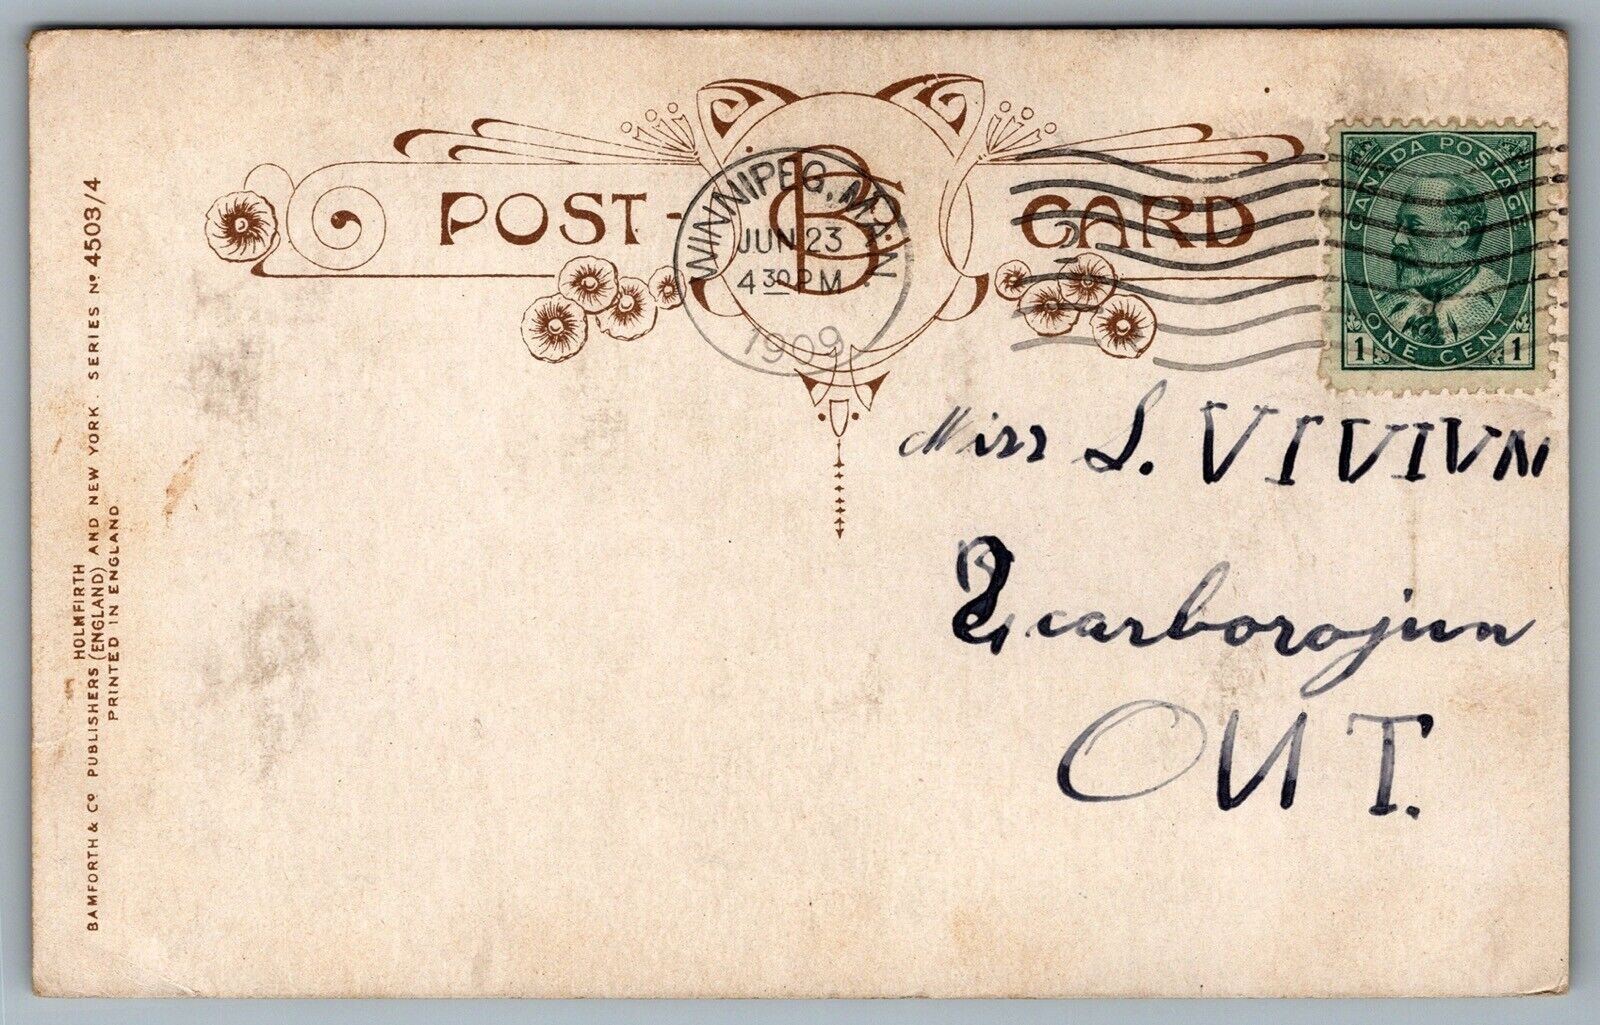 POST CARD
BC
WINNIPEG, MAN.
JUN 23
4 30 PM
1909
CANADA POSTAGE
1 ONE CENT 1
Miss S. VIVIVN
Scarborojun
OUT.
HOLMFIRTH
BAMFORTH & Co PUBLISHERS (ENGLAND) AND NEW YORK. SERIES No 4503/4
PRINTED IN ENGLAND